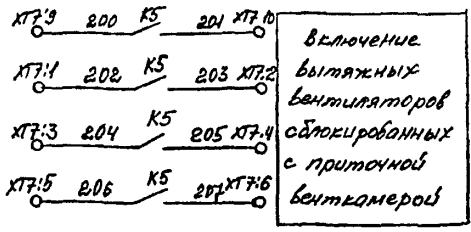 ХТ7:9 200 К5 201 ХТ7:10
ХТ7:1 202 К5 203 ХТ7:2
ХТ7:3 204 К5 205 ХТ7:4
ХТ7:5 206 К5 207 ХТ7:6
Включение
вытяжных
вентиляторов
сблокированных
с приточной
венткамерой